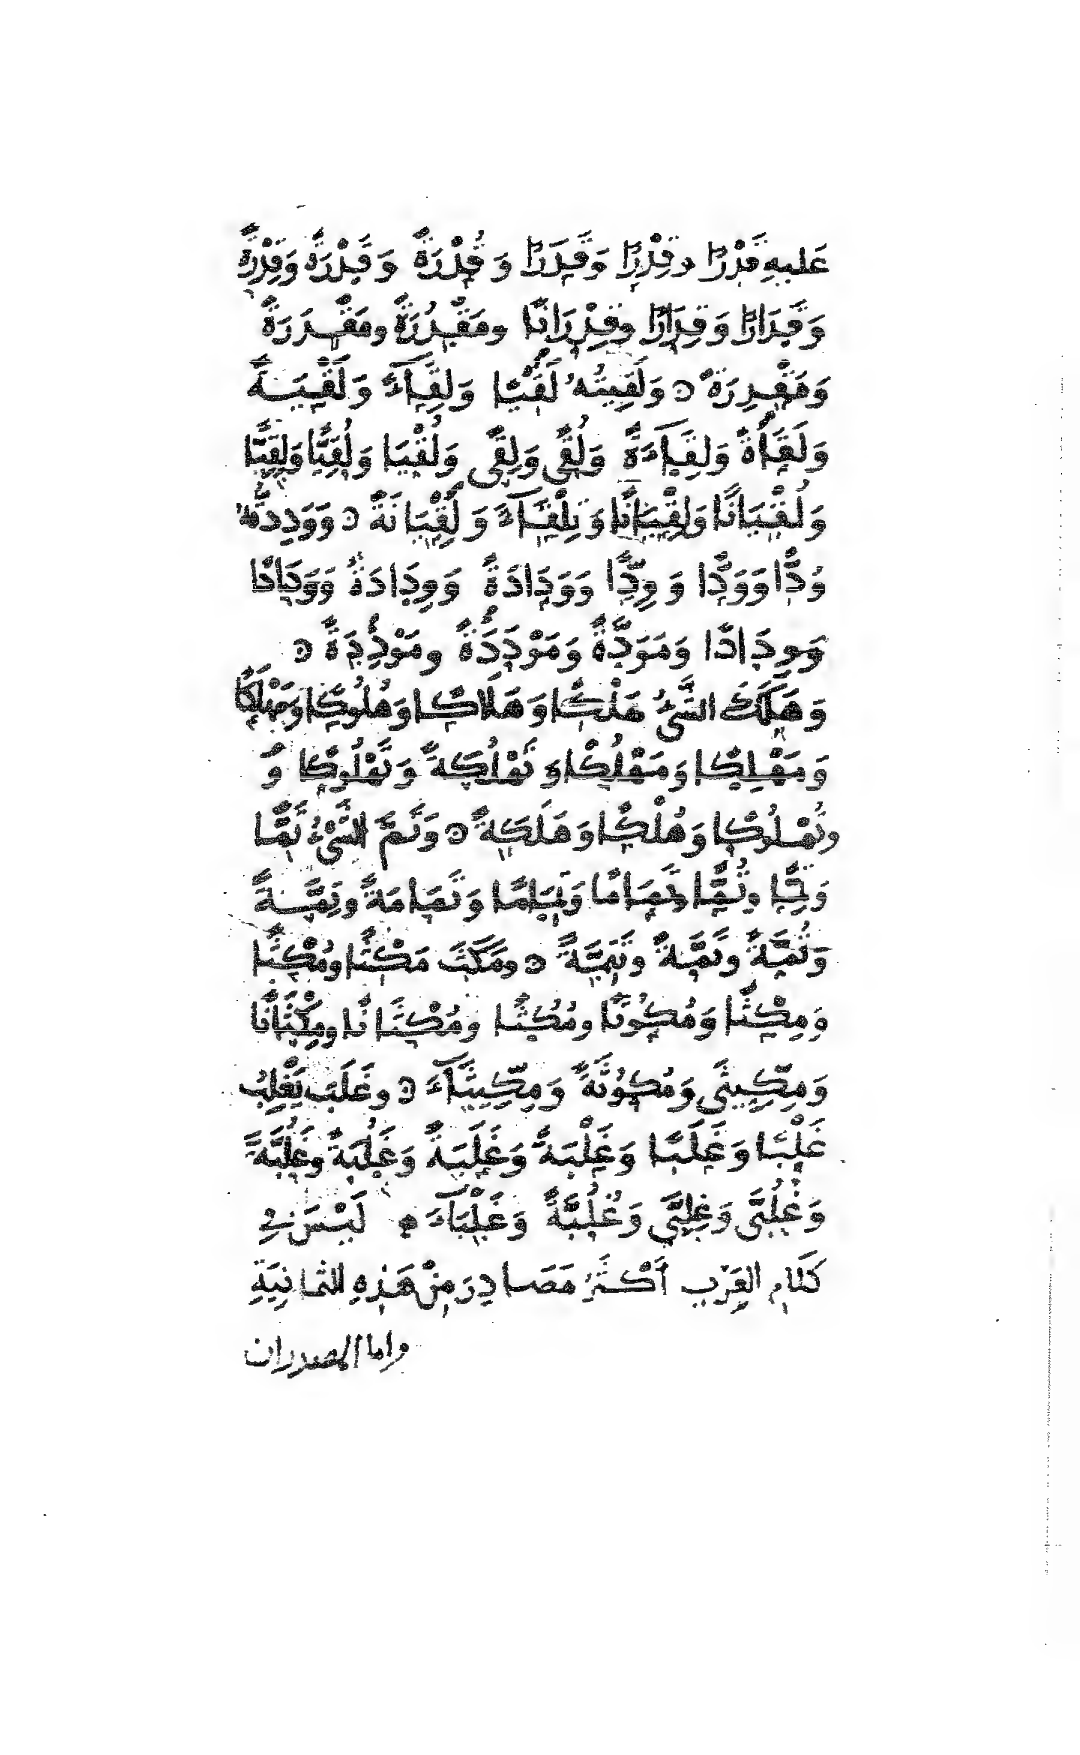 عَليهِ قَدْرًا وقِدْرًا وَقَدَرًا وَ قُدْرَةً وَقَدْرَةً وَقِدْرَةً
وَقَدَارًا وَقِدَارًا وقِدْرَانًا ومَقْدُرَةً ومَقْدَرَةً
وَمَقْدِرَةً ه وَلَقِيتُهُ لَقْيًا وَلِقَآءً وَلَقْيَةً
وَلَقَاةً وَلِقَآءَةً وَلُقًى وَلِقًى وَلُقْيَا وَلُقِيًّا وَلِقِيًّا
وَلُقْيَانًا وَلِقْيَانًا وَتِلْقَآءً وَلُقْيَانَةً ه وَوَدِدتُّهُ
وُدًّا وَوَدًّا وَ وِدًّا وَوَدَادَةً وَوِدَادَةً وَوَدَادًا
وَوِدَادًا وَمَوَدَّةً وَمَوْدَدَةً ومَوْدِدَةً ه
وَهَلَكَ الشَّيْءُ هَلْكًا وَهَلَاكًا وَهُلُوكًا وَمَهْلَكًا
وَمَهْلِكًا وَمَهْلُكًا وَ تَهْلُكَةً وَتَهْلُوكًا وَ
وتُهْلُوكًا وَهُلْكًا وَهَلَكَةً ه وَتَمَّ الشَّيْءُ تَمًّا
وَتِمًّا وتُمًّا وتَمَامًا وَتِمَامًا وَتَمَامَةً وتِمَّةً
وَتُمَّةً وتَمَّةً ه ومَكَثَ مَكْثًا ومُكْثًا
وَمِكْثًا وَمُكُوثًا ومُكُثًا ومُكْثَانًا ومِكْثَانًا
وَمِكِّيثَى وَمُكُوثَةً وَمِكِّيثَآءَ ه وغَلَبَ يَغْلِبُ
غَلْبًا وَغَلَبًا وَغَلْبَةً وَغَلَبَةً وَغُلُبَةً وغَلُبَّةً
وَغُلُبَّى وَغِلِبَّى وَغُلُبَّةً وَغَلْبَآءَ ه لَيْسَ فِي
كلَامِ العَرَبِ أَكْثَرُ مَصَادِرَ مِنْ هَذِهِ الثمَانِيَةِ
واما المصدران